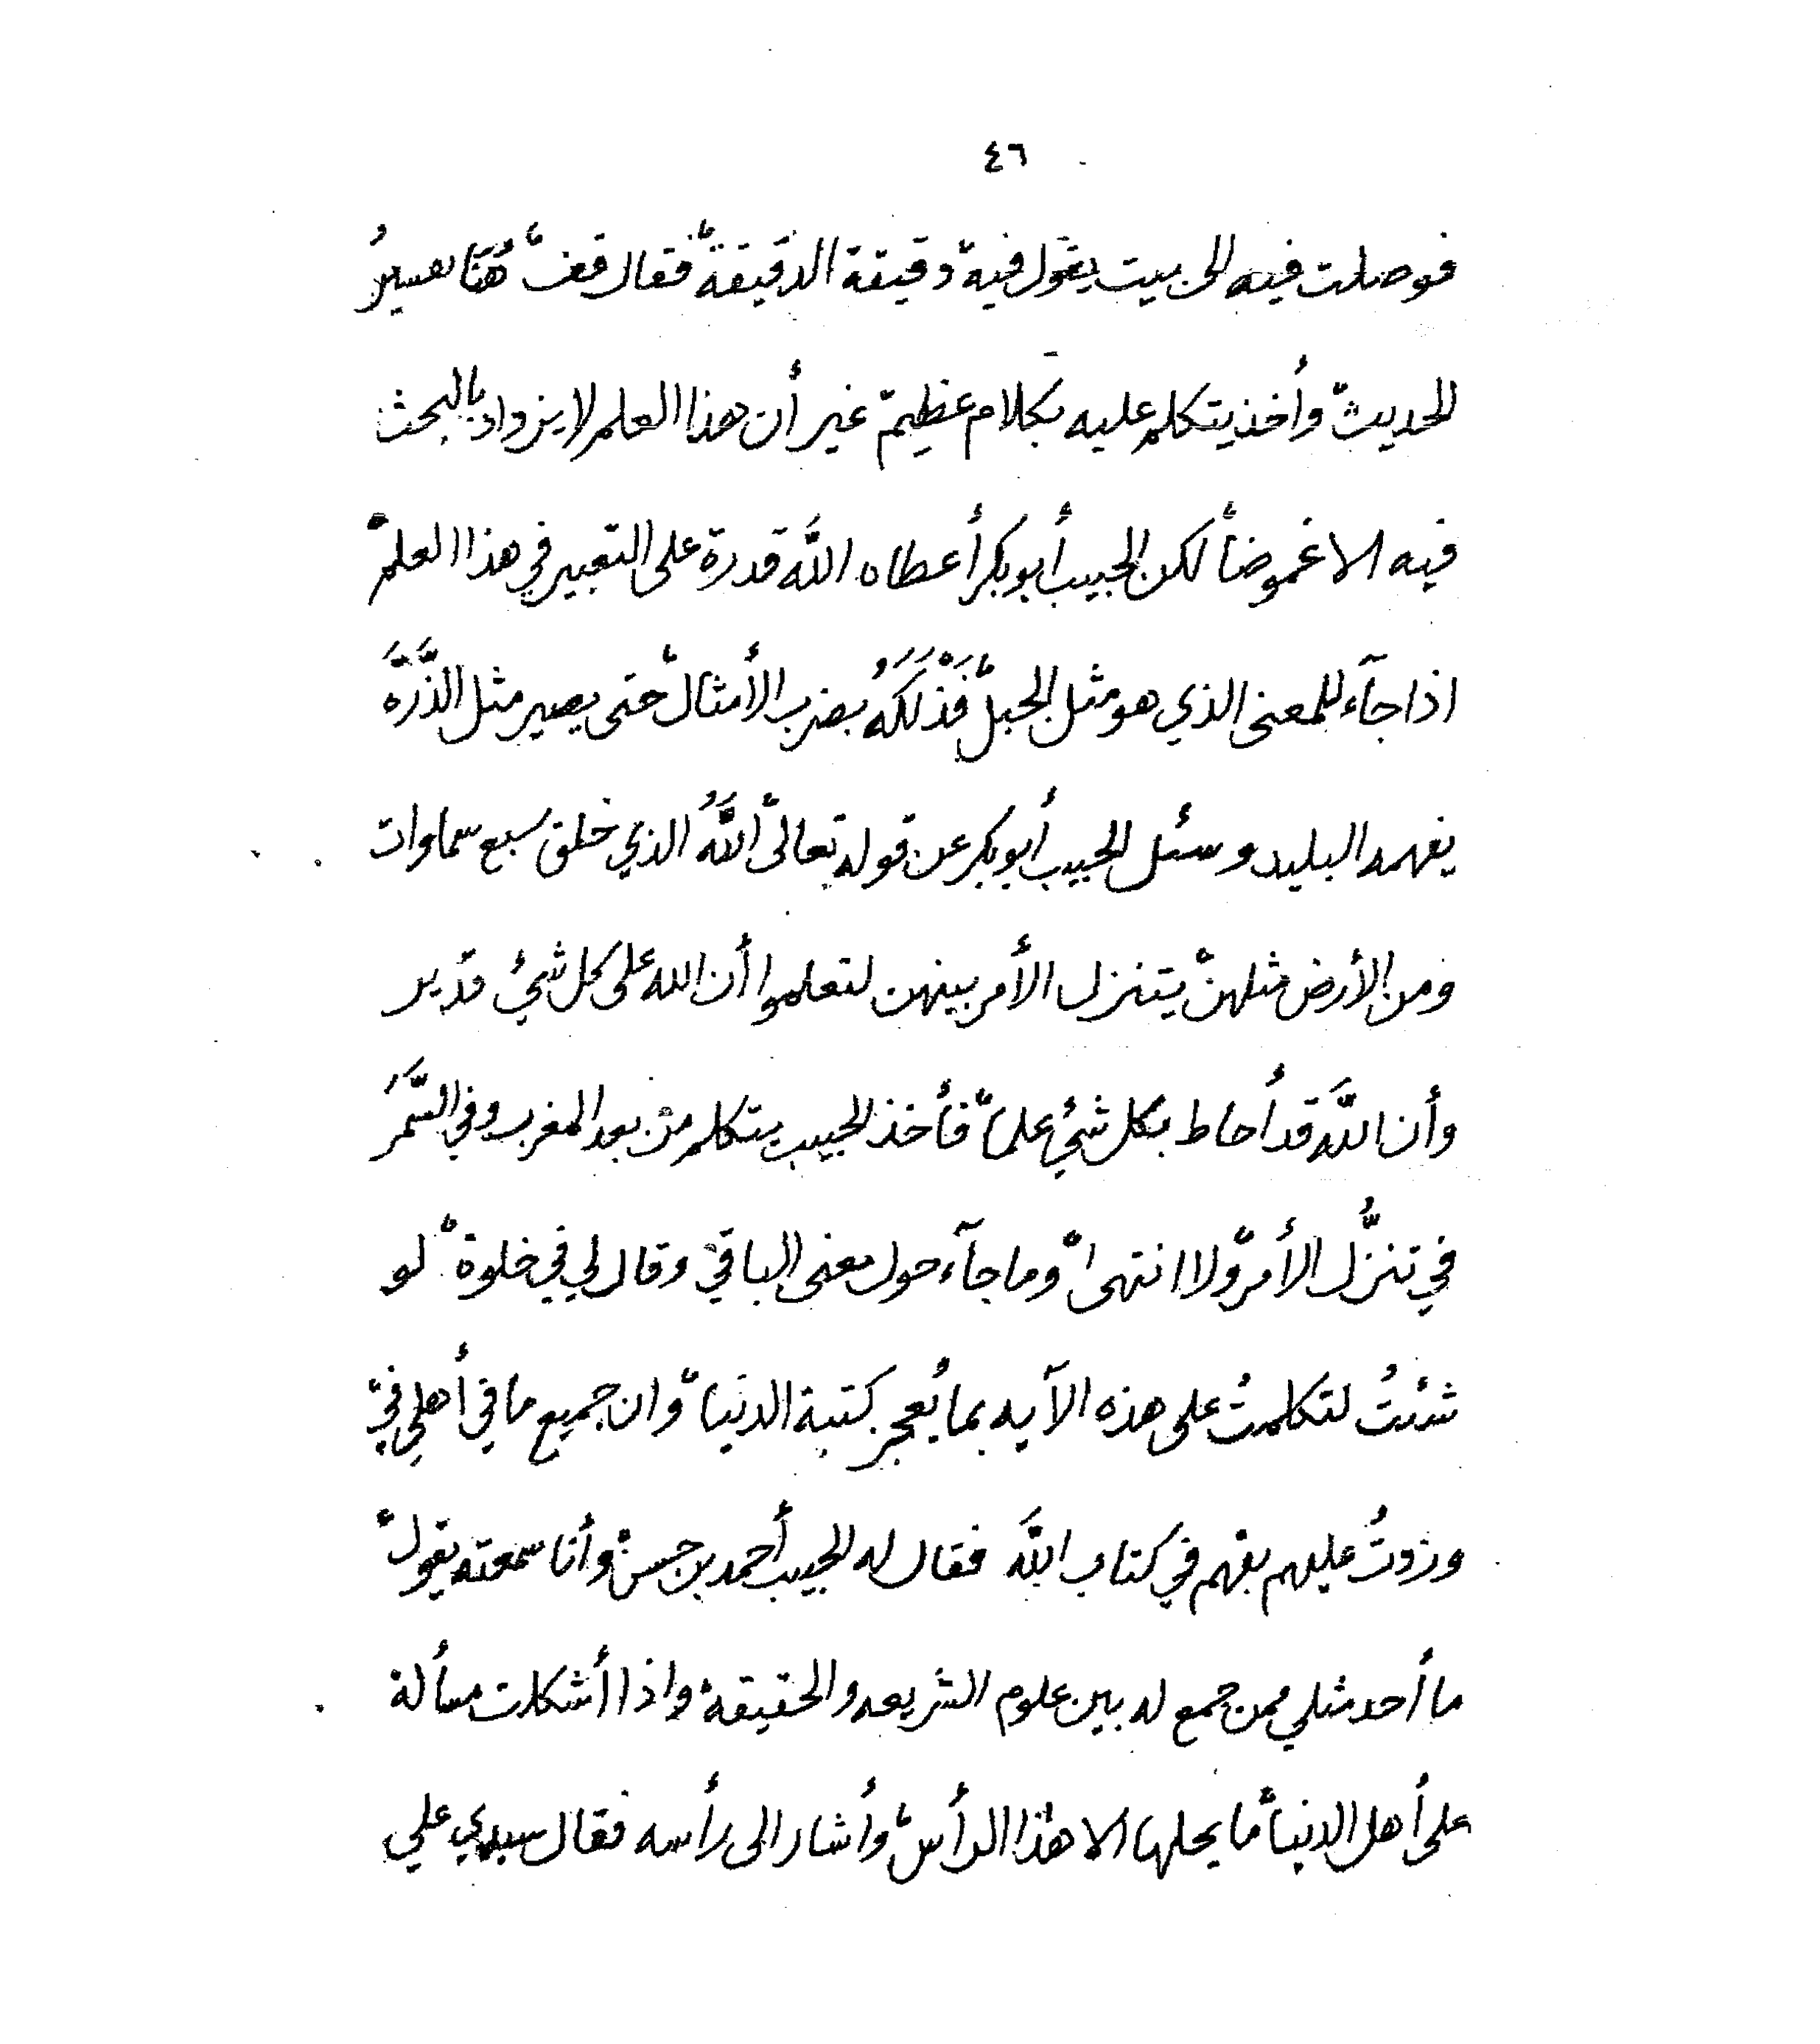 ٤٦
فوصلت فيه الى بيت يقول فيه دقيقة الدقيقة فقال قف هُنَا يسيرُ
الحديث وأخذ يتكلم عليه بكلام عظيم غير أن هذا العلم لا يزداد بالبحث
فيه الا غموضاً لكن الحبيب أبوبكر أعطاه اللَّه قدرة على التعبير في هذا العلم
اذا جآء للمعنى الذي هو مثل الجبل فَذْلَكَهُ بضرب الأمثال حتى يصير مثل الذَّرَّه
يفهمه البليد وسئل الحبيب أبوبكر عن قوله تعالى اللَّهُ الذي خلق سبع سماوات
ومن الأرض مثلهن يتنزل الأمر بينهن لتعلموا أن الله على كل شئ قدير
وأن اللَّه قد أحاط بكل شئ علما فأخذ الحبيب يتكلم من بعد المغرب وفي السَّمَر
في تنزُّل الأمر ولا انتهى وما جآء حول معنى الباقي وقال لي في خلوة لو
شئتُ لتكلمتُ على هذه الآيه بما يُعجز كتبة الدنيا وان جميع ما في أهلي فيّ
وزدتُ عليهم بفهم في كتاب اللَّه فقال له الحبيب أحمد بن حسن وأنا سمعته يقول
ما أحد مثلي ممن جمع له بين علوم الشريعه والحقيقة واذا أشكلت مسألة
على أهل الدنيا ما يحلها الا هذا الرأس وأشار الى رأسه فقال سيدي علي